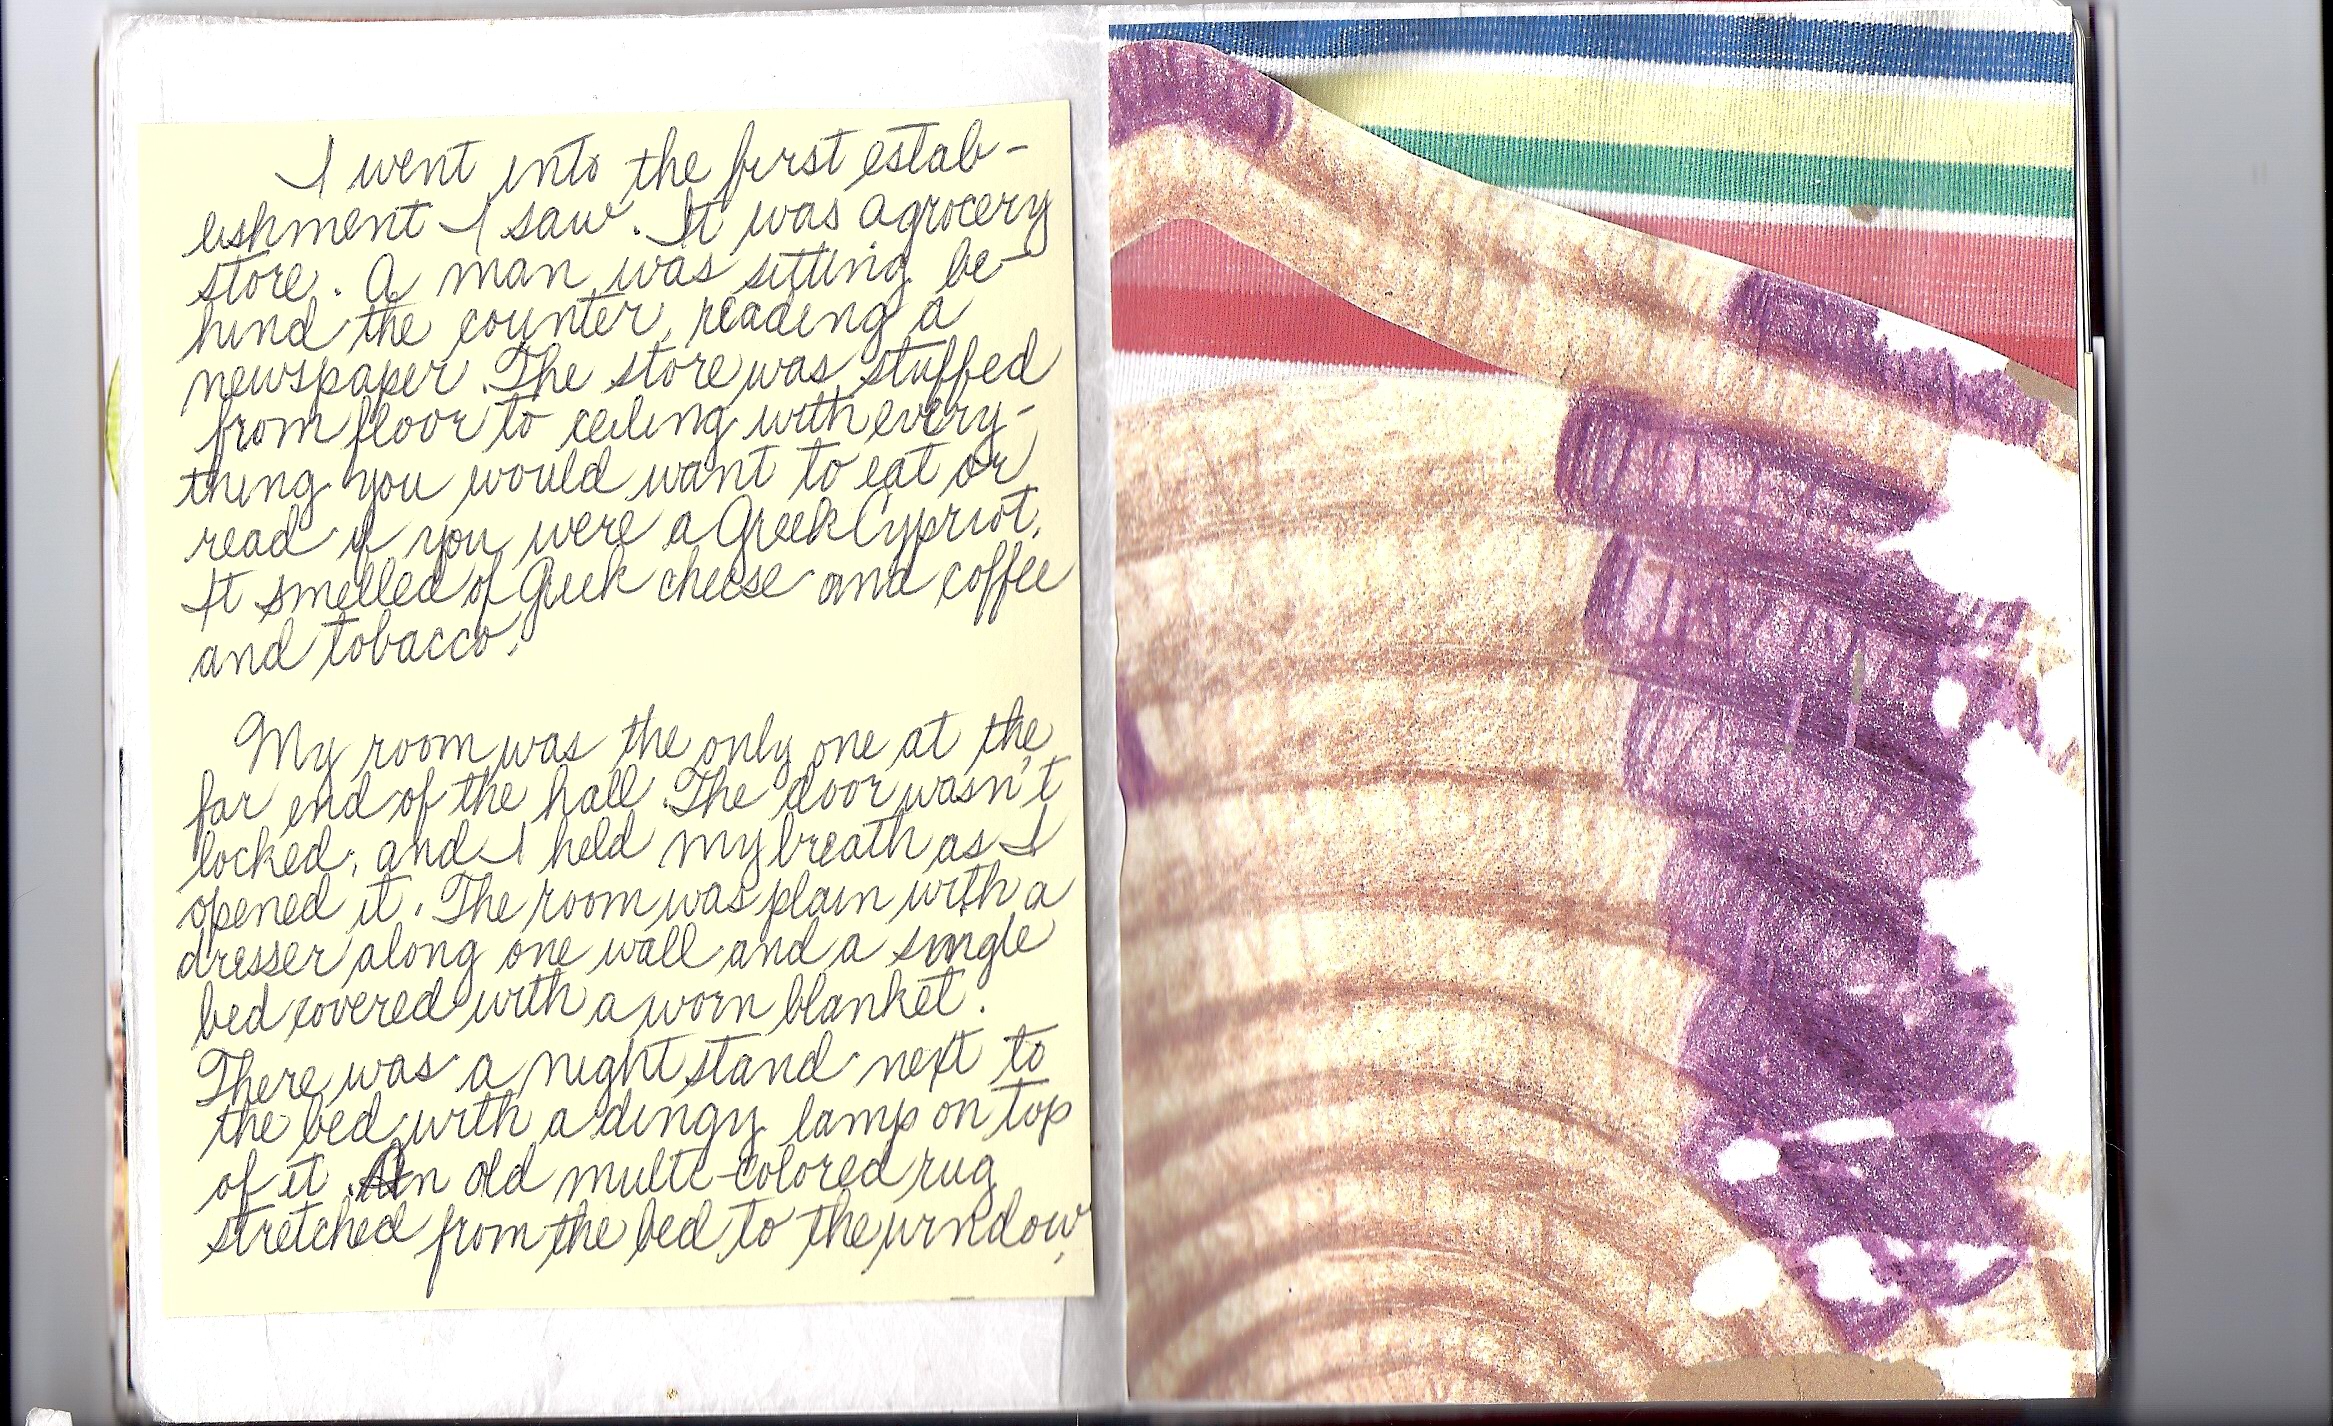 I went into the first estab-
lishment I saw. It was a grocery
store. A man was sitting be-
hind the counter, reading a
newspaper. The store was stuffed
from floor to ceiling with every-
thing you would want to eat or
read if you were a Greek Cypriot.
It smelled of Greek cheese and coffee
and tobacco.
My room was the only one at the
far end of the hall. The door wasn't
locked, and I held my breath as I
opened it. The room was plain with a
dresser along one wall and a single
bed covered with a worn blanket.
There was a night stand next to
the bed with a dingy lamp on top
of it. An old multi-colored rug
stretched from the bed to the window.